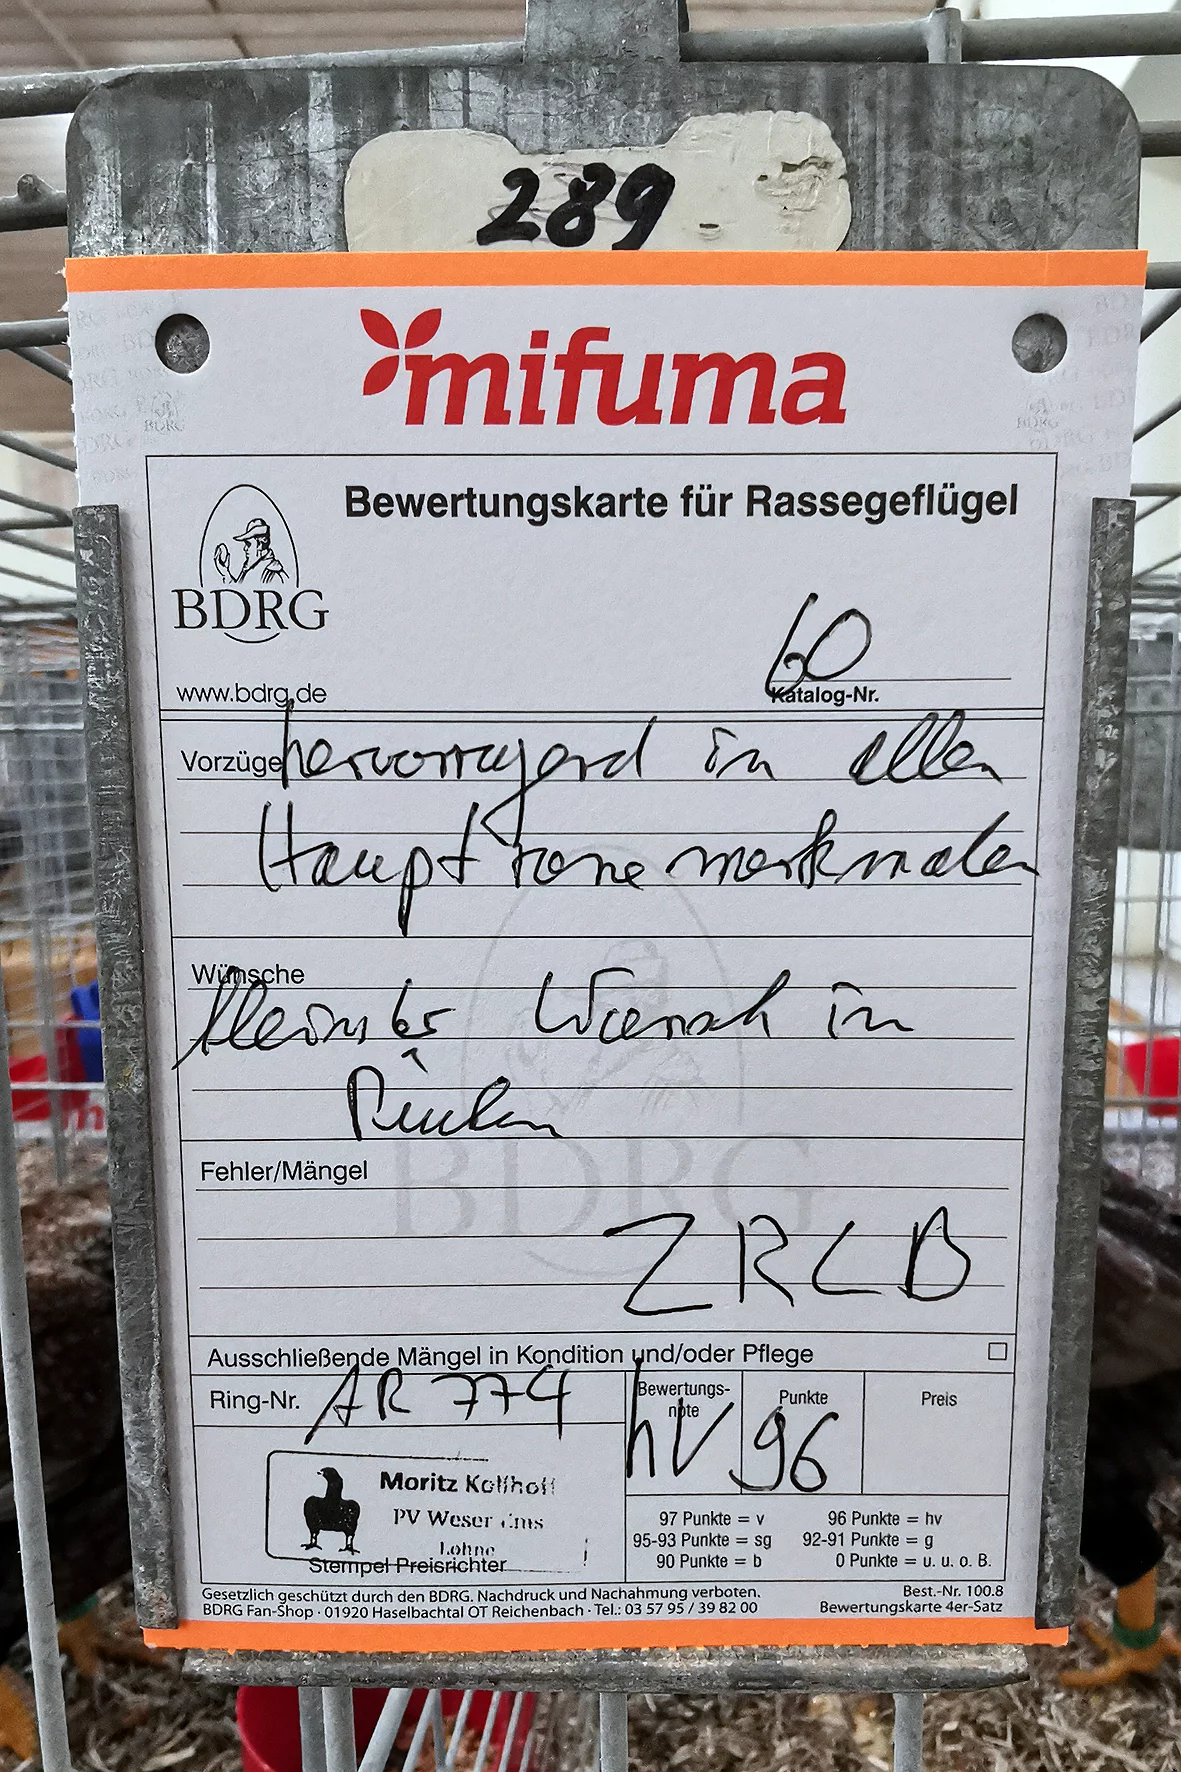 289
mifuma
Bewertungskarte für Rassegeflügel
BDRG
60
www.bdrg.de
Katalog-Nr.
Vorzüge
hervorragend in allen
Hauptrassemerkmalen
Wünsche
kleinster Wunsch in
Rücken
BDRG
Fehler/Mängel
ZRLB
Ausschließende Mängel in Kondition und/oder Pflege
Ring-Nr. AR 774
Bewertungs-
note
hV
Punkte
96
Preis
Moritz Kollhoff
PV Weser Ems
Lohne
Stempel Preisrichter
97 Punkte = v 96 Punkte = hv
95-93 Punkte = sg 92-91 Punkte = g
90 Punkte = b 0 Punkte = u. u. o. B.
Gesetzlich geschützt durch den BDRG. Nachdruck und Nachahmung verboten. Best.-Nr. 100.8
BDRG Fan-Shop · 01920 Haselbachtal OT Reichenbach · Tel.: 03 57 95 / 39 82 00 Bewertungskarte 4er-Satz